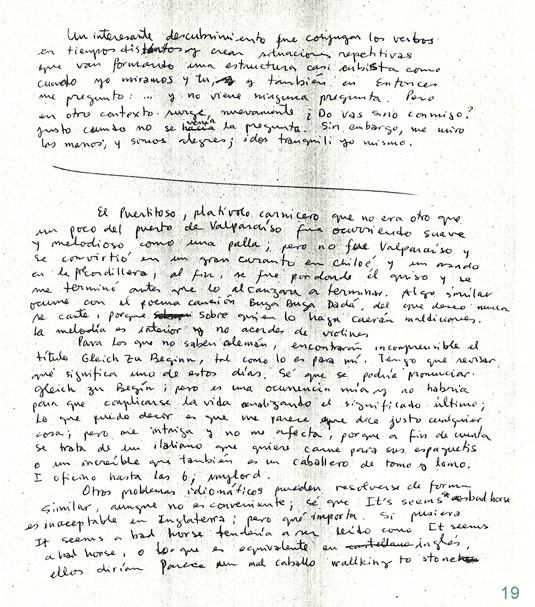 Un interesante descubrimiento fue conjugar los verbos
en tiempos distintos y crear situaciones repetitivas
que van formando una estructura casi cubista como
cuando yo miramos y tu, y también en Entonces
me pregunto: ... y no viene ninguna pregunta. Pero
en otro contexto surge, nuevamente ¿Do vas sino conmigo?
justo cuando no se hacía venía la pregunta. Sin embargo, me miro
las manos, y somos alegres; idos tranquili yo mismo.
El Puertitoso, platívolo carnicero que no era otro que
un poco del puerto de Valparaíso fue ocurriendo suave
y melodioso como una palla; pero no fue Valparaíso y
se convirtió en un gran curanto en Chiloé, y un asado
en la Pcordillera, al fin, se fue por donde él quiso y se
me terminó antes que lo alcanzara a terminar. Algo similar
ocurre con el poema canción Buga Buga Dadá, del que deseo nunca
se cante, porque sobre quien lo haga caerán maldiciones.
la melodía es interior y no acordes de violines
Para los que no saben alemán, encontrarán incomprensible el
título Gleich Zu Beginn, tal como lo es para mí. Tengo que revisar
qué significa uno de estos días. Sé que se podría pronunciar
Gleich zu Begín; pero es una ocurrencia mía y no habría
para que complicarse la vida analizando el significado último;
lo que puedo decir es que me parece que dice justo cualquier
cosa; pero me intriga y no me afecta, porque a fin de cuenta
se trata de un italiano que quiere carne para sus espaguetis
o un increíble que también es un caballero de tomo y lomo.
I oficino hasta las 6; mylord.
Otros problemas idiomáticos pueden resolverse de forma
similar, aunque no es conveniente; sé que It's seems a bad horse
es inaceptable en Inglaterra; pero qué importa. Si pusiera
It seems a bad horse tendería a ser leído como It seems
a bad horse, o lo que es equivalente en castellano inglés,
ellos dirían Parece un mal caballo wallking to stone
19